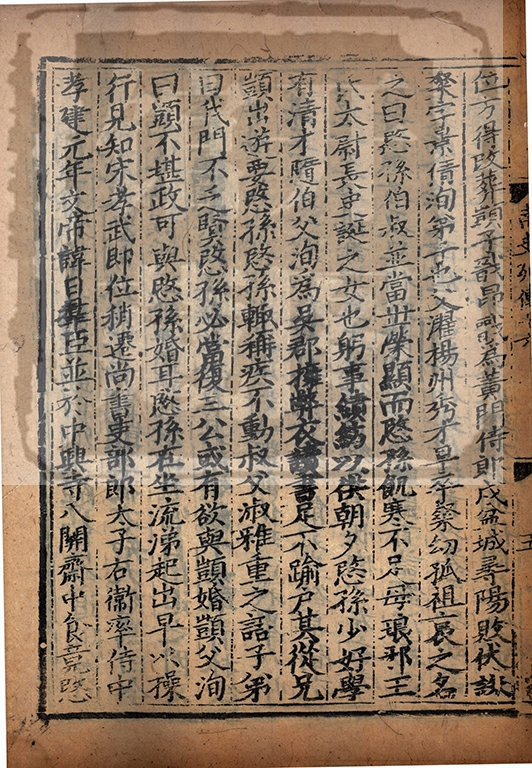 位方得改葬顗子戩昂戩爲黃門侍郎戍盆城尋陽敗伏誅
粲字景倩洵弟子也父濯揚州秀才早卒粲幼孤祖哀之名
之曰愍孫伯叔並當世榮顯而愍孫飢寒不足母琅邪王
氏太尉長史誕之女也躬事績紡以供朝夕愍孫少好學
有清才隨伯父洵爲吳郡擁弊衣讀書足不踰戶其從兄
顗出遊要愍孫愍孫輒稱疾不動叔父淑雅重之語子弟
曰我門不乏賢愍孫必當復三公或有欲與顗婚顗父洵
曰顗不堪政可與愍孫婚耳愍孫在坐流涕起出早以操
行見知宋孝武即位稍遷尚書吏部郎太子右衞率侍中
孝建元年文帝諱日羣臣並於中興寺八關齋中食竟愍